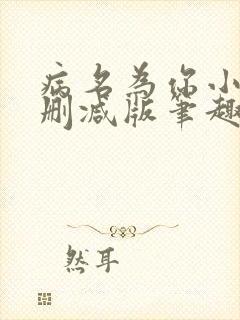 病名为你小
删减版笔趣
然耳